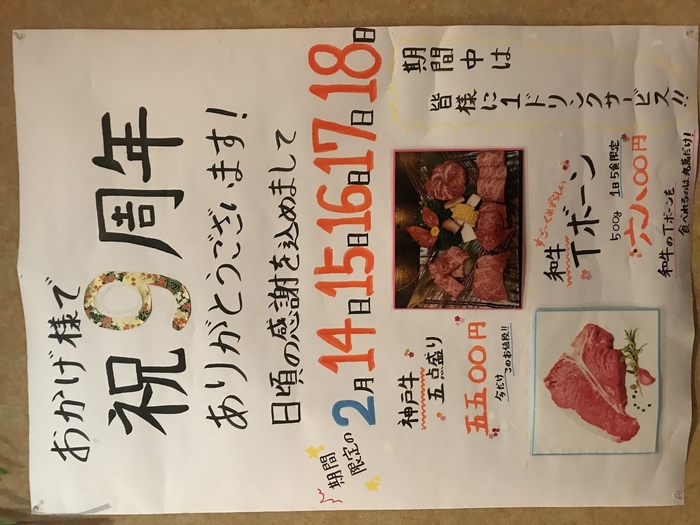 おかげ様で
祝9周年
ありがとうございます!
日頃の感謝を込めまして
期間
限定の
2月14日15日16日17日18日
期間中は
皆様に1ドリンクサービス!!
神戸牛
五点盛り
五五〇〇円
今だけ
このお値段!!
すごーくめずらしい
和牛
Tボーン
500g 1日5食限定
六八〇〇円
和牛のTボーンを
食べれるのは丸萬だけ!